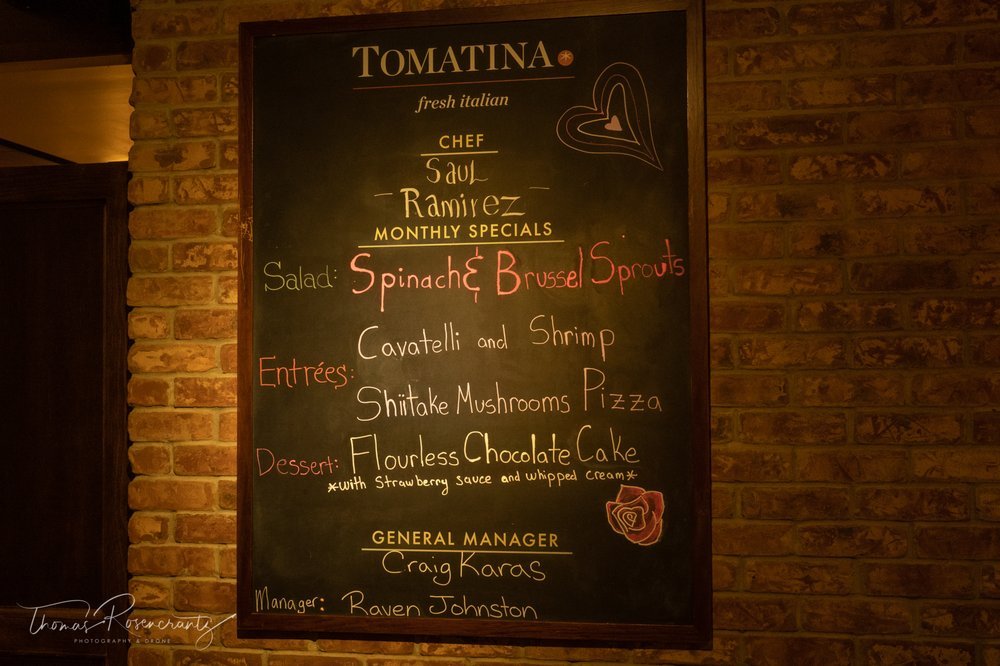 TOMATINA
fresh italian
CHEF
Saul
- Ramirez -
MONTHLY SPECIALS
Salad: Spinach & Brussel Sprouts
Cavatelli and Shrimp
Entrées:
Shiitake Mushrooms Pizza
Dessert: Flourless Chocolate Cake
*with Strawberry sauce and whipped cream*
GENERAL MANAGER
Craig Karas
Manager: Raven Johnston
Thomas Rosencrantz
PHOTOGRAPHY & DRONE